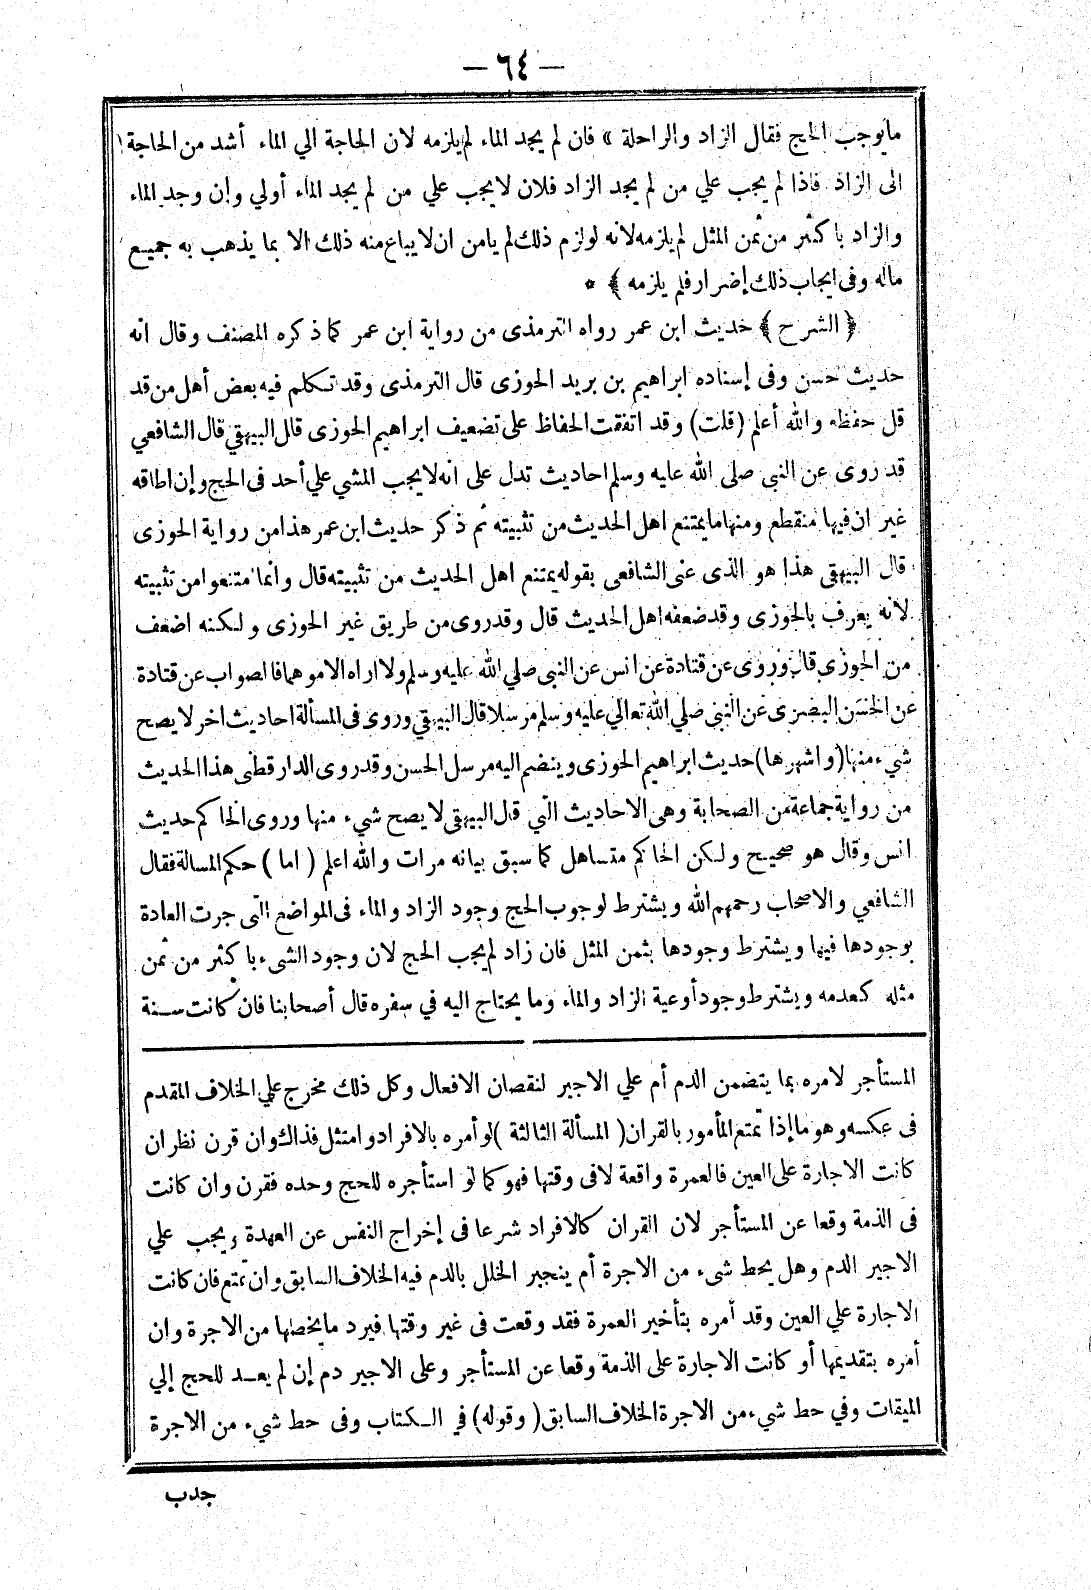 — ٦٤ —
مايوجب الحج فقال الزاد والراحلة » فان لم يجد الماء لم يلزمه لان الحاجة الي الماء أشد من الحاجة
الى الزاد فاذا لم يجب علي من لم يجد الزاد فلان لا يجب علي من لم يجد الماء أولي وإن وجد الماء
والزاد با كثر من ثمن المثل لم يلزمه لانه لو لزم ذلك لم يامن ان لا يباع منه ذلك الا بما يذهب به جميع
ماله وفى ايجاب ذلك إضرار فلم يلزمه ﴾ *
﴿ الشرح ﴾ حديث ابن عمر رواه الترمذى من رواية ابن عمر كما ذكره المصنف وقال انه
حديث حسن وفى إسناده ابراهيم بن يريد الخوزى قال الترمذى وقد تكلم فيه بعض أهل من قد
قل حفظه والله أعلم (قلت) وقد اتفقت الحفاظ على تضعيف ابراهيم الخوزى قال البيهقي قال الشافعي
قد روى عن النبي صلى الله عليه وسلم احاديث تدل على انه لا يجب المشي علي أحد فى الحج وإن اطاقه
غير ان فيها منقطع ومنها ما يمتنع اهل الحديث من تثبيته ثم ذكر حديث ابن عمر هذا من رواية الخوزى
قال البيهقى هذا هو الذى عنى الشافعى بقوله يمتنع اهل الحديث من تثبيته قال وانما امتنعوا من تثبيته
لانه يعرف بالخوزى وقد ضعفه اهل الحديث قال وقد روى من طريق غير الخوزى ولكنه اضعف
من الخوزى قال وروى عن قتادة عن انس عن النبى صلي الله عليه وسلم ولا اراه الا موهما فالصواب عن قتادة
عن الحسن البصرى عن النبى صلي الله تعالي عليه وسلم مرسلا قال البيهقي وروى فى المسألة احاديث اخر لا يصح
شيء منها (واشهرها) حديث ابراهيم الخوزى وينضم اليه مرسل الحسن وقد روى الدارقطنى هذا الحديث
من رواية جماعة من الصحابة وهى الاحاديث التى قال البيهقى لا يصح شيء منها وروى الحاكم حديث
انس وقال هو صحيح ولكن الحاكم متساهل كما سبق بيانه مرات والله اعلم ( اما ) حكم المسالة فقال
الشافعي والاصحاب رحمهم الله ويشترط لوجوب الحج وجود الزاد والماء فى المواضع التى جرت العادة
بوجودها فيها ويشترط وجودها بثمن المثل فان زاد لم يجب الحج لان وجود الشىء با كثر من ثمن
مثله كعدمه ويشترط وجود أوعية الزاد والماء وما يحتاج اليه في سفره قال أصحابنا فان كانت سنة
المستأجر لامره بما يتضمن الدم أم علي الاجير لنقصان الافعال وكل ذلك مخرج علي الخلاف المقدم
فى عكسه وهو ما إذا تمتع المأمور بالقران ( المسألة الثالثة ) لو أمره بالافراد وامتثل فذاك وان قرن نظر ان
كانت الاجارة على العين فالعمرة واقعة لا فى وقتها فهو كما لو استأجره للحج وحده فقرن وان كانت
فى الذمة وقعا عن المستأجر لان القران كالافراد شرعا فى إخراج النفس عن العهدة ويجب علي
الاجير الدم وهل يحط شىء من الاجرة أم ينجبر الخلل بالدم فيه الخلاف السابق وان تمتع فان كانت
الاجارة علي العين وقد أمره بتأخير العمرة فقد وقعت فى غير وقتها فيرد ما يخصها من الاجرة وان
أمره بتقديمها أو كانت الاجارة على الذمة وقعا عن المستأجر وعلى الاجير دم إن لم يعد للحج إلي
الميقات وفي حط شيء من الاجرة الخلاف السابق ( وقوله) فى الكتاب وفى حط شيء من الاجرة
جدب